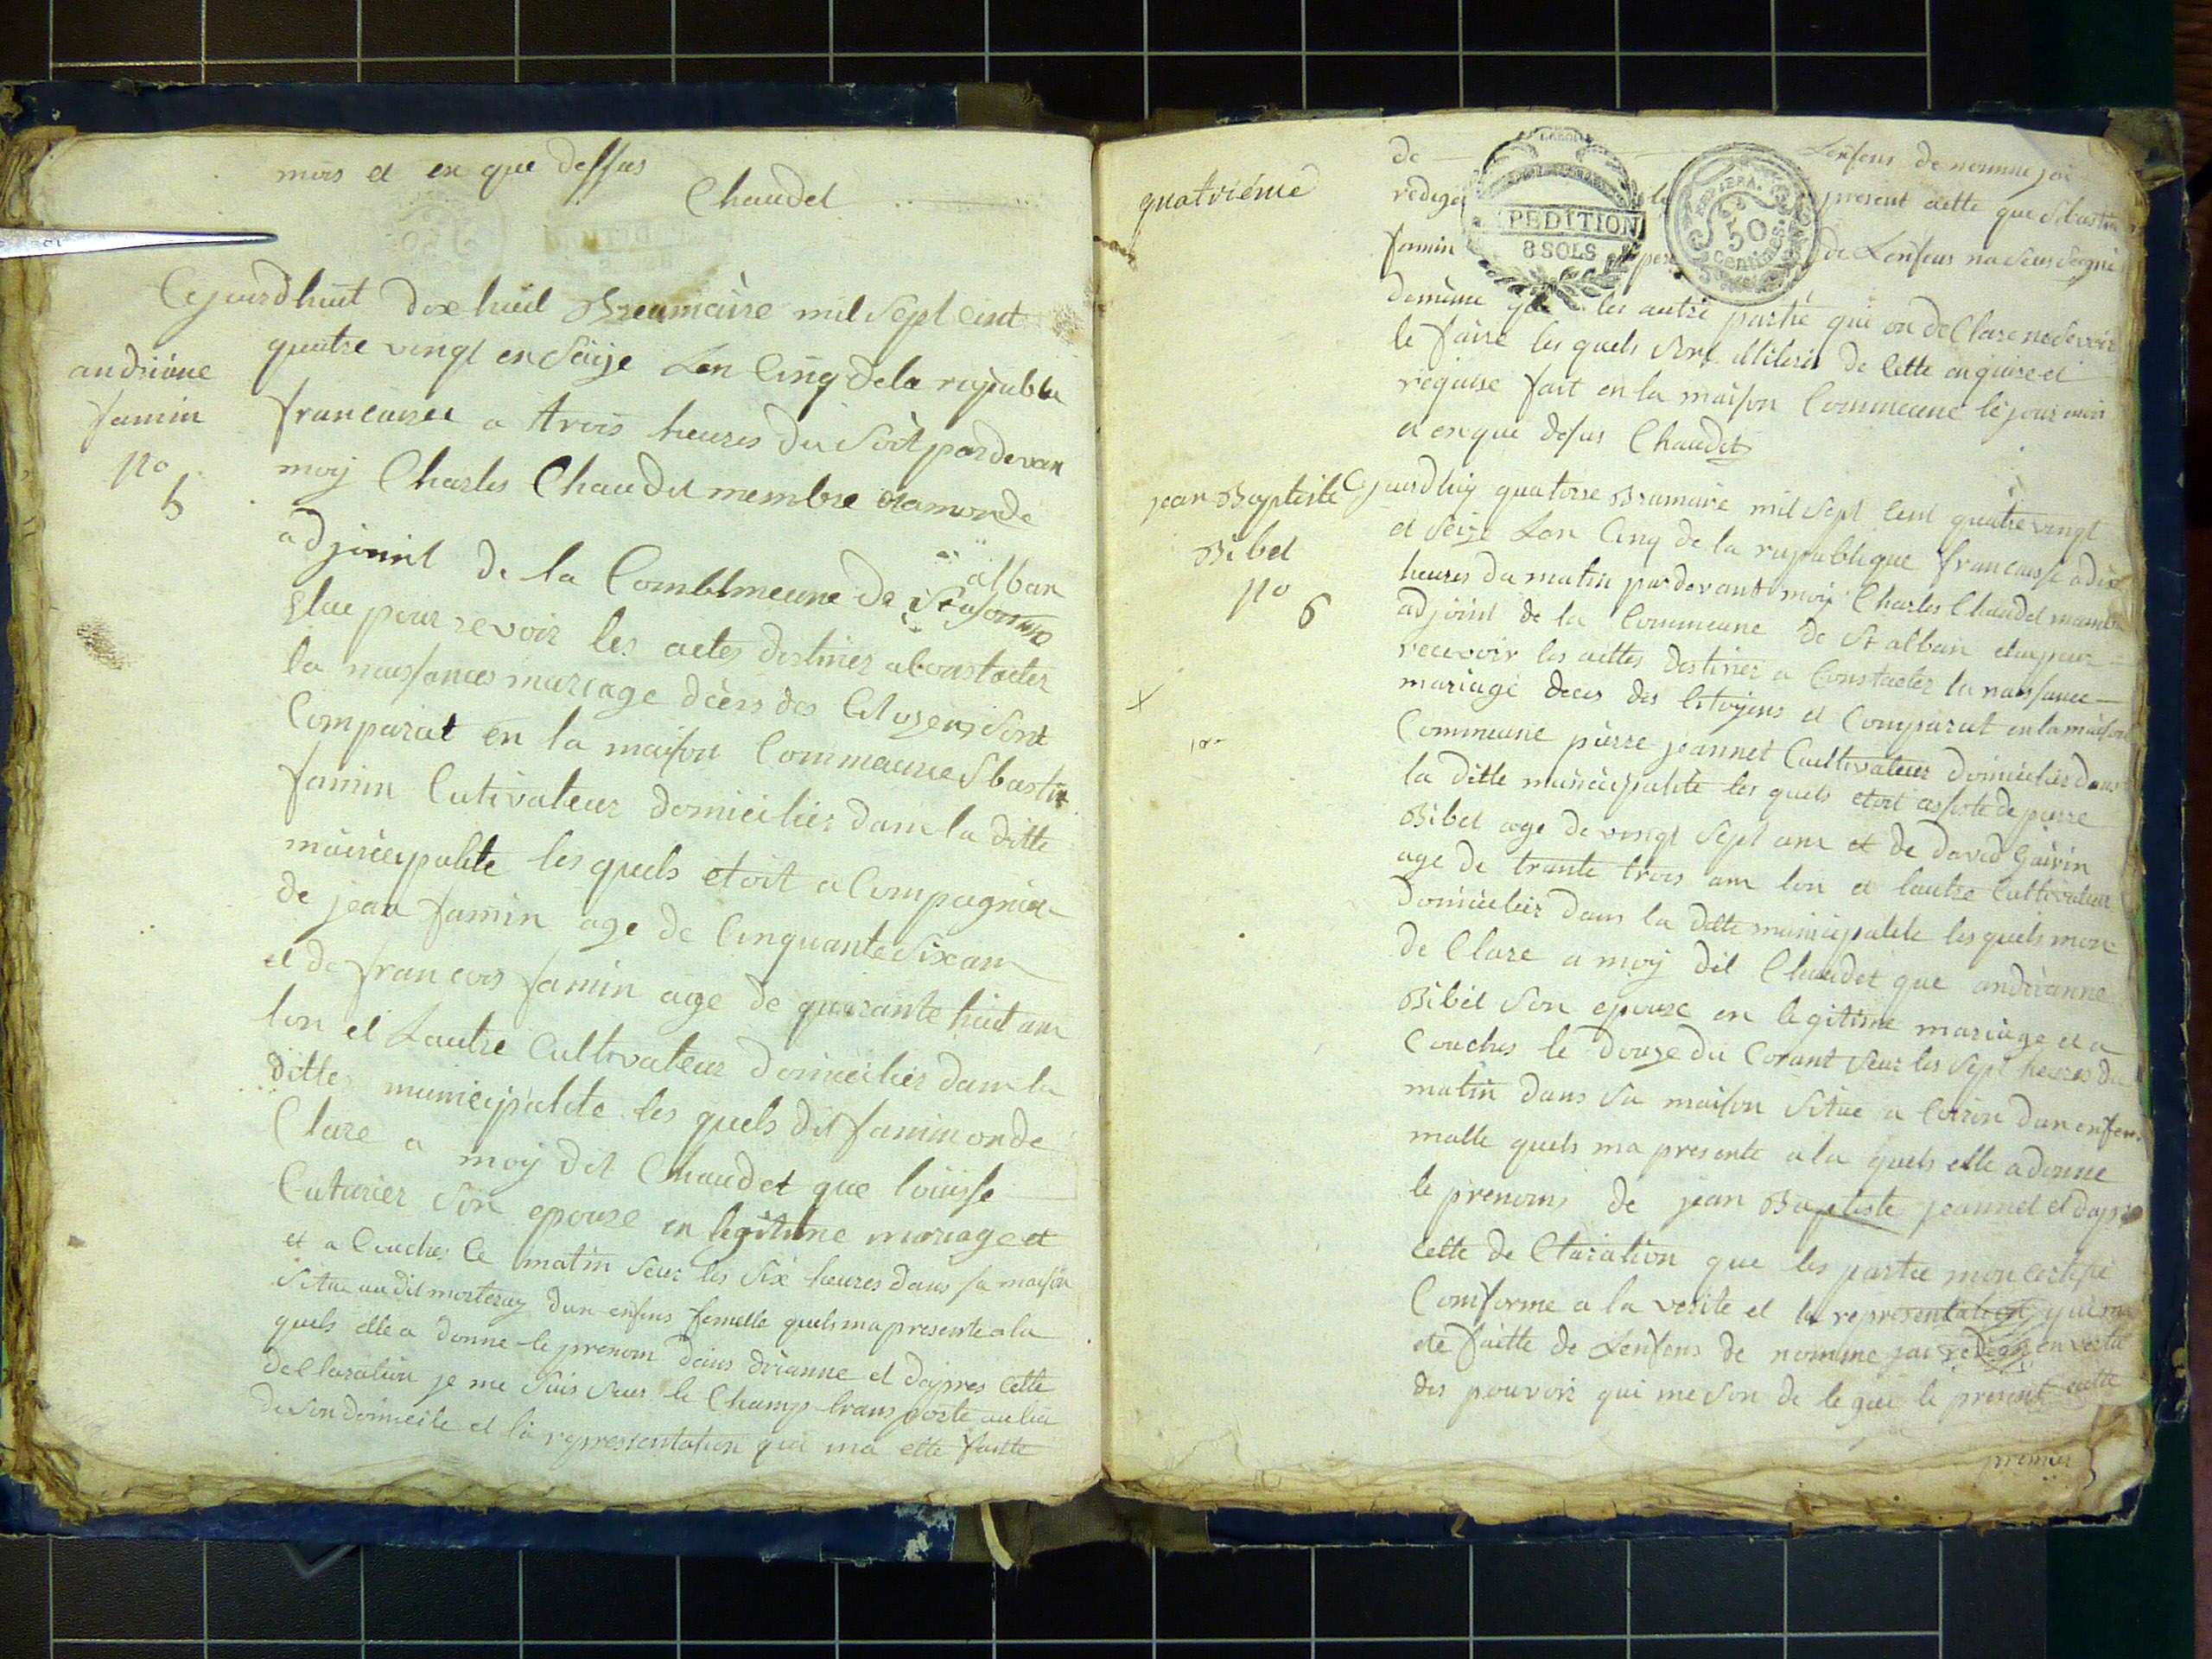 mois et en que dessus
Chaudet
Cejourdhuit dixhuit Breumaire mil sept cint
quatre vingt en saize Lan Cinq dela repubbla
andriéne
famin
no
5
francaisee a trois heures du Soit pardevan
moy Charles Chaudet membre
adjoint de la Comblmeune de St alban
Elue pour revoir les actes destinez a Constater
la naissances mariage déces des Citoyens Sont
Comparut en la maison Commeune Sbastin
famin Cutivateur domicilier dam la ditte
municipalite les quels etoit a Compagnier
de jean famin age de Cinquante Six am
et de francois famin age de quarante huit am
lon et Lautre Cultivateur domicilier dam la
ditte municipalite les quels dit famin on de
Clare a moy dit Chaudet que louisse
Cuturier Son epouze en legitime mariage et
et a Couche Ce matin Seur les Six heures dans sa maison
Situe au dit morteray dun enfens femelle quels ma presente a la
quels elle a donne le prenom dains drianne et dapres Cette
declaration je me Suis Seur le Champ transporte au lieu
de Son domicile et la representation qui ma ette faitte
quatriéme
de Lenfens de nomme jai
redige le present actte que Sbastin
PEDITION
8 SOLS
50
Centimes
famin pere de Lenfens na Seus Segné
demême que les autre partie qui on declare ne Sevoir
le faire les quels Sont illiteré de Cette enquiré et
requise fait en la maison Commeune le jour mois
et en que desus Chaudet
jean Baptiste
Bibet
no
6
Cejourdhuy quatorse Brumaire mil Sept Cent quatre vingt
et Seize Lan Cinq de la republique francaisse a dix
heures du matin pardevant moy Charles Chaudet membre
adjoint de la Commeune de St alban elue pour
recevoir les acttes destiner a Constacter la naissance
mariage deces des Citoyens et Comparut en la maison
Commeune pierre jeannet Cultivateur domicilier dans
la ditte municipalite les quels etoit assiste de pierre
Bibet age de vingt Sept am et de david Gairin
age de trante trois am lon et lautre Cultivateur
domicilier dans la ditte municipalite les quels mon
de Clare a moy dit Chaudet que andrianne
Bibet Son epouze en legitime mariage et a
Couches le douze du Corant Seur les Sept heures du
matin dans Sa maison Situe a Coirin dun enfens
malle quels ma presente a la quels elle a donne
le prenoms de jean Baptiste jeannet et dapre
Cette de Claration que les partie mon certifie
Comforme a la verite et la representation qui ma
ete faitte de Lenfens de nomme jai redige en vertu
des pouvoir qui me Son de legue le present actte
premier